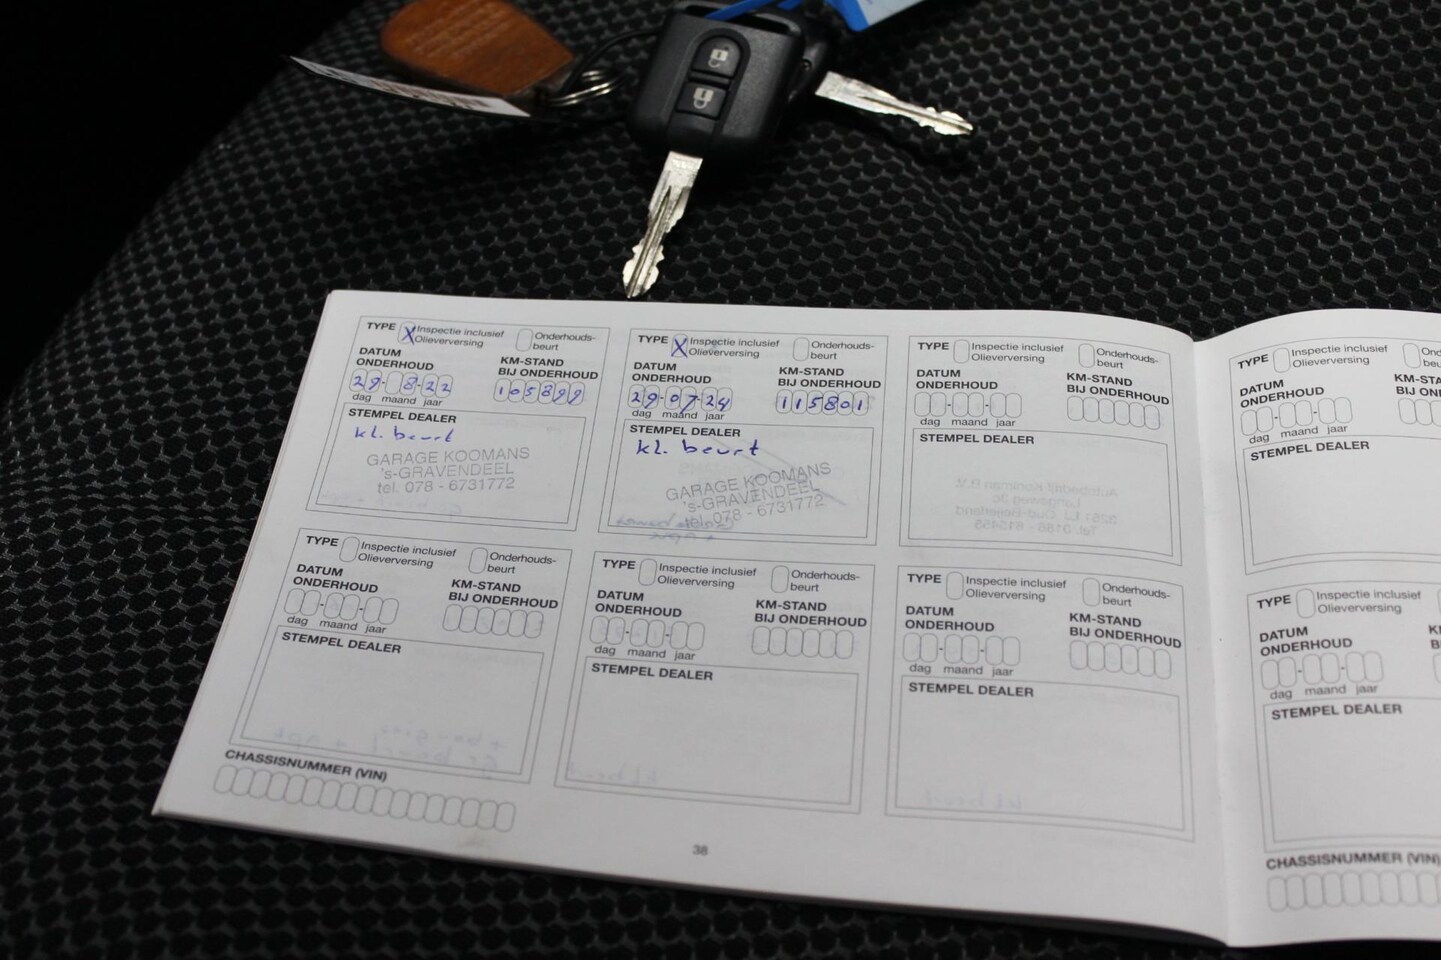 TYPE X Inspectie inclusief Olieverversing Onderhouds-beurt
DATUM ONDERHOUD KM-STAND BIJ ONDERHOUD
29-8-22 105899
dag maand jaar
STEMPEL DEALER
kl. beurt
GARAGE KOOMANS
's-GRAVENDEEL
tel. 078 - 6731772
TYPE X Inspectie inclusief Olieverversing Onderhouds-beurt
DATUM ONDERHOUD KM-STAND BIJ ONDERHOUD
29-07-24 115801
dag maand jaar
STEMPEL DEALER
kl. beurt
GARAGE KOOMANS
's-GRAVENDEEL
tel. 078 - 6731772
TYPE Inspectie inclusief Olieverversing Onderhouds-beurt
DATUM ONDERHOUD KM-STAND BIJ ONDERHOUD
dag maand jaar
STEMPEL DEALER
TYPE Inspectie inclusief Olieverversing
DATUM ONDERHOUD
dag maand jaar
STEMPEL DEALER
TYPE Inspectie inclusief Olieverversing Onderhouds-beurt
DATUM ONDERHOUD KM-STAND BIJ ONDERHOUD
dag maand jaar
STEMPEL DEALER
TYPE Inspectie inclusief Olieverversing Onderhouds-beurt
DATUM ONDERHOUD KM-STAND BIJ ONDERHOUD
dag maand jaar
STEMPEL DEALER
TYPE Inspectie inclusief Olieverversing Onderhouds-beurt
DATUM ONDERHOUD KM-STAND BIJ ONDERHOUD
dag maand jaar
STEMPEL DEALER
TYPE Inspectie inclusief Olieverversing
DATUM ONDERHOUD
dag maand jaar
STEMPEL DEALER
CHASSISNUMMER (VIN)
38
CHASSISNUMMER (VIN)